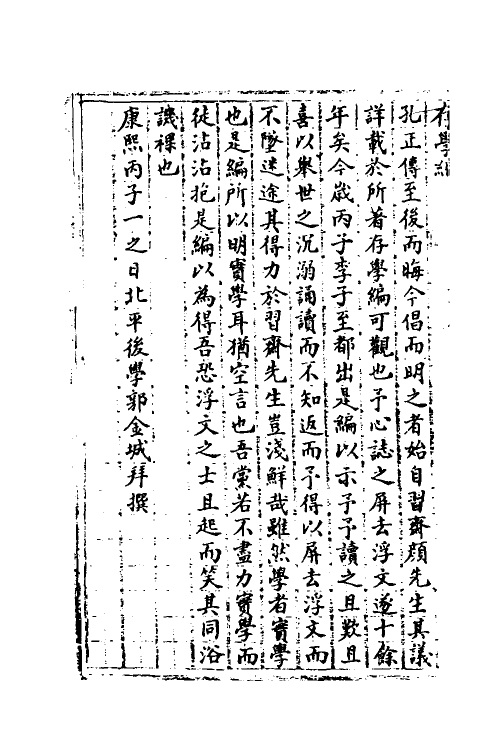 存學編
孔正傳至後而晦今倡而明之者始自習齋顔先生其議
詳載於所著存學編可觀也予心誌之屏去浮文遂十餘
年矣今歲丙子李子至都出是編以示予予讀之且歎且
喜以舉世之沉溺誦讀而不知返而予得以屏去浮文而
不墜迷途其得力於習齋先生豈淺鮮哉雖然學者實學
也是編所以明實學耳猶空言也吾黨若不盡力實學而
徒沾沾抱是編以為得吾恐浮文之士且起而笑其同浴
譏裸也
康熙丙子一之日北平後學郭金城拜撰